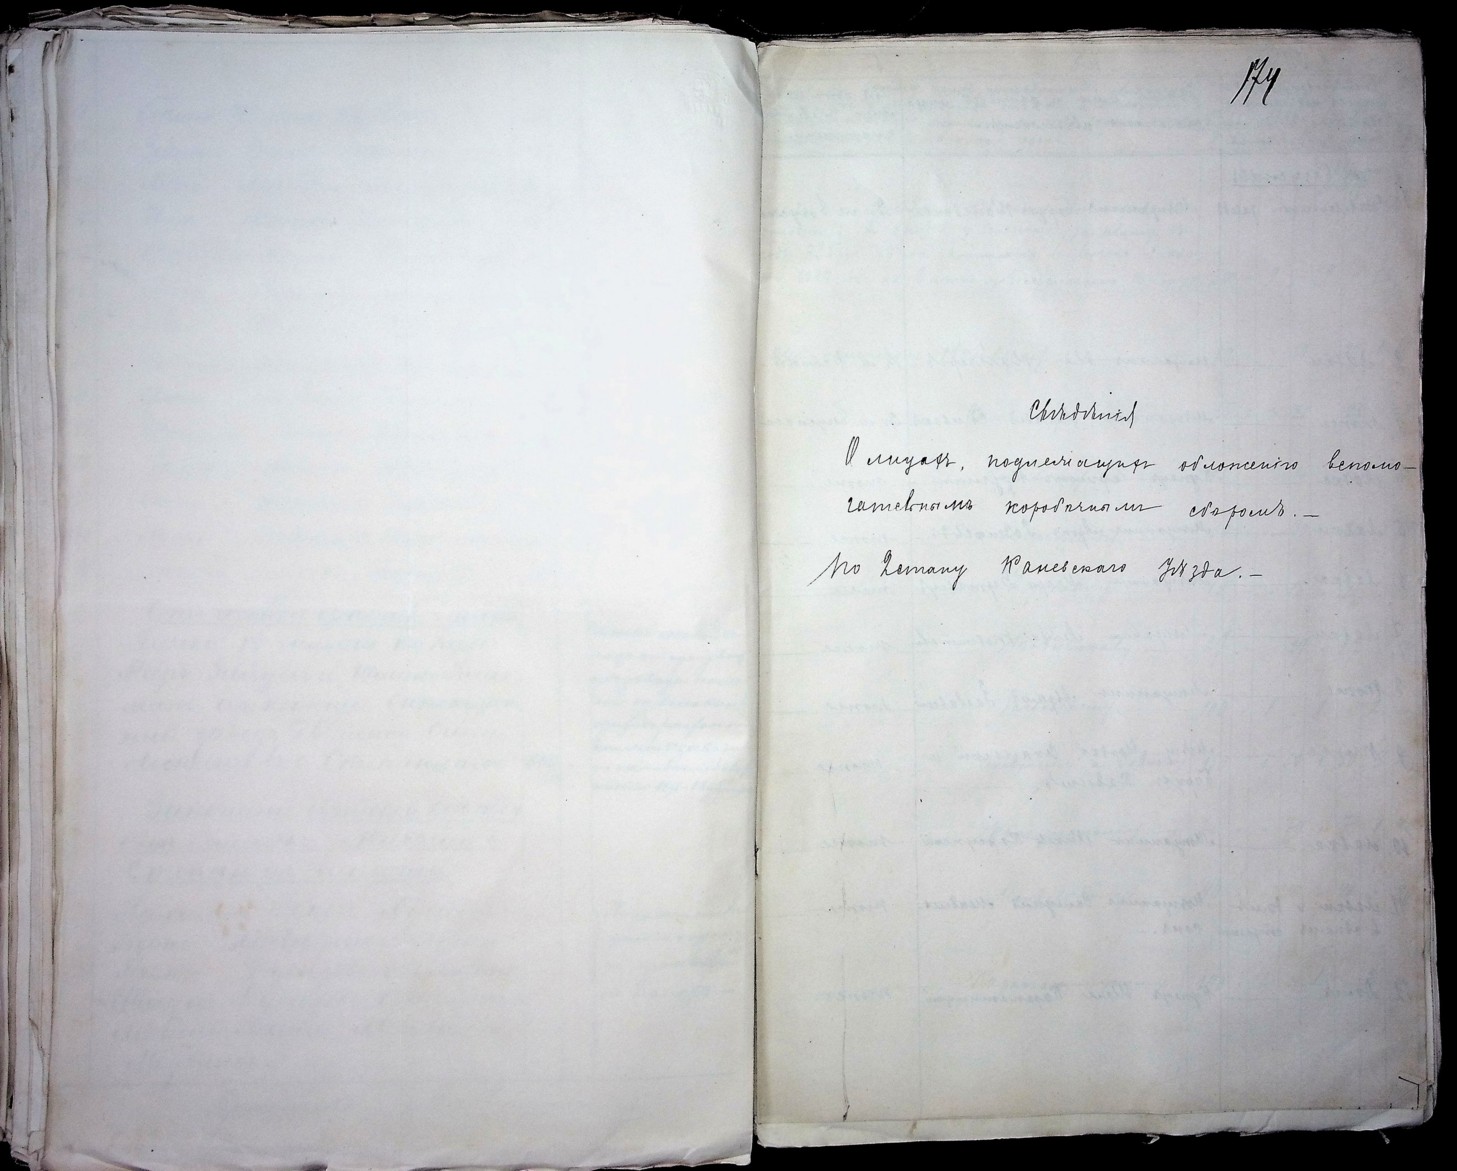 174
Свѣдѣнія
О лицахъ, подлежащихъ обложенію вспомо-
гательнымъ коробочнымъ сборомъ.—
По 2 стану Каневскаго Уѣзда.—